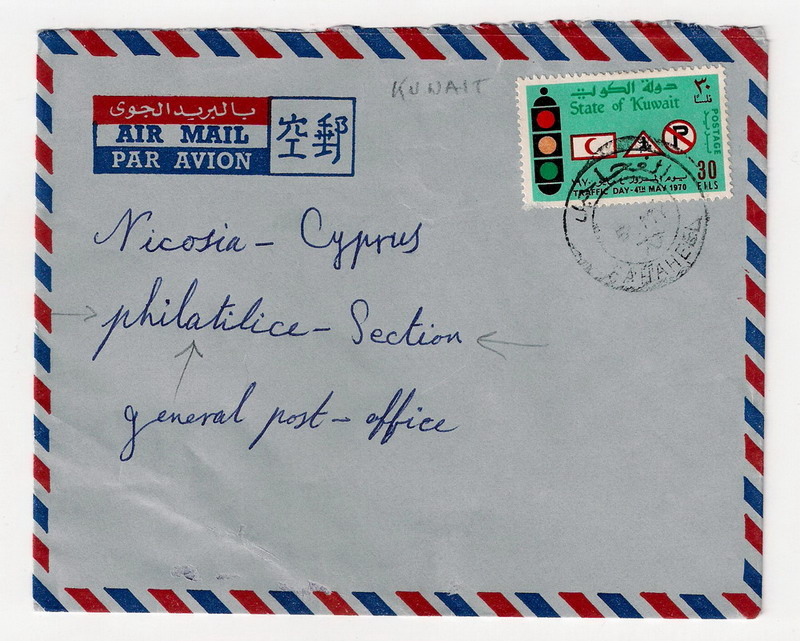 KUWAIT
بالبريد الجوي
AIR MAIL
PAR AVION
空郵
دولة الكويت
State of Kuwait
٣٠
فلسًا
POSTAGE
P
30
FILS
TRAFFIC DAY - 4TH MAY 1970
الفحاحيل
FAHAHEEL
Nicosia - Cyprus
philatilice - Section
general post - office